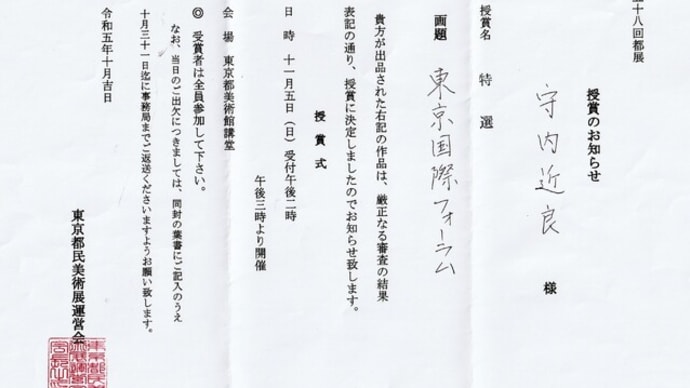 十八回都展
授賞のお知らせ
守内近良 様
授賞名 特選
画題 東京国際フォーラム
貴方が出品された右記の作品は、厳正なる審査の結果
表記の通り、授賞に決定しましたのでお知らせ致します。
授賞式
日時 十一月五日（日）受付午後二時
午後三時より開催
会場 東京都美術館講堂
◎ 受賞者は全員参加して下さい。
なお、当日のご出欠につきましては、同封の葉書にご記入のうえ
十月三十一日迄に事務局までご返送くださいますようお願い致します。
令和五年十月吉日
東京都民美術展運営会